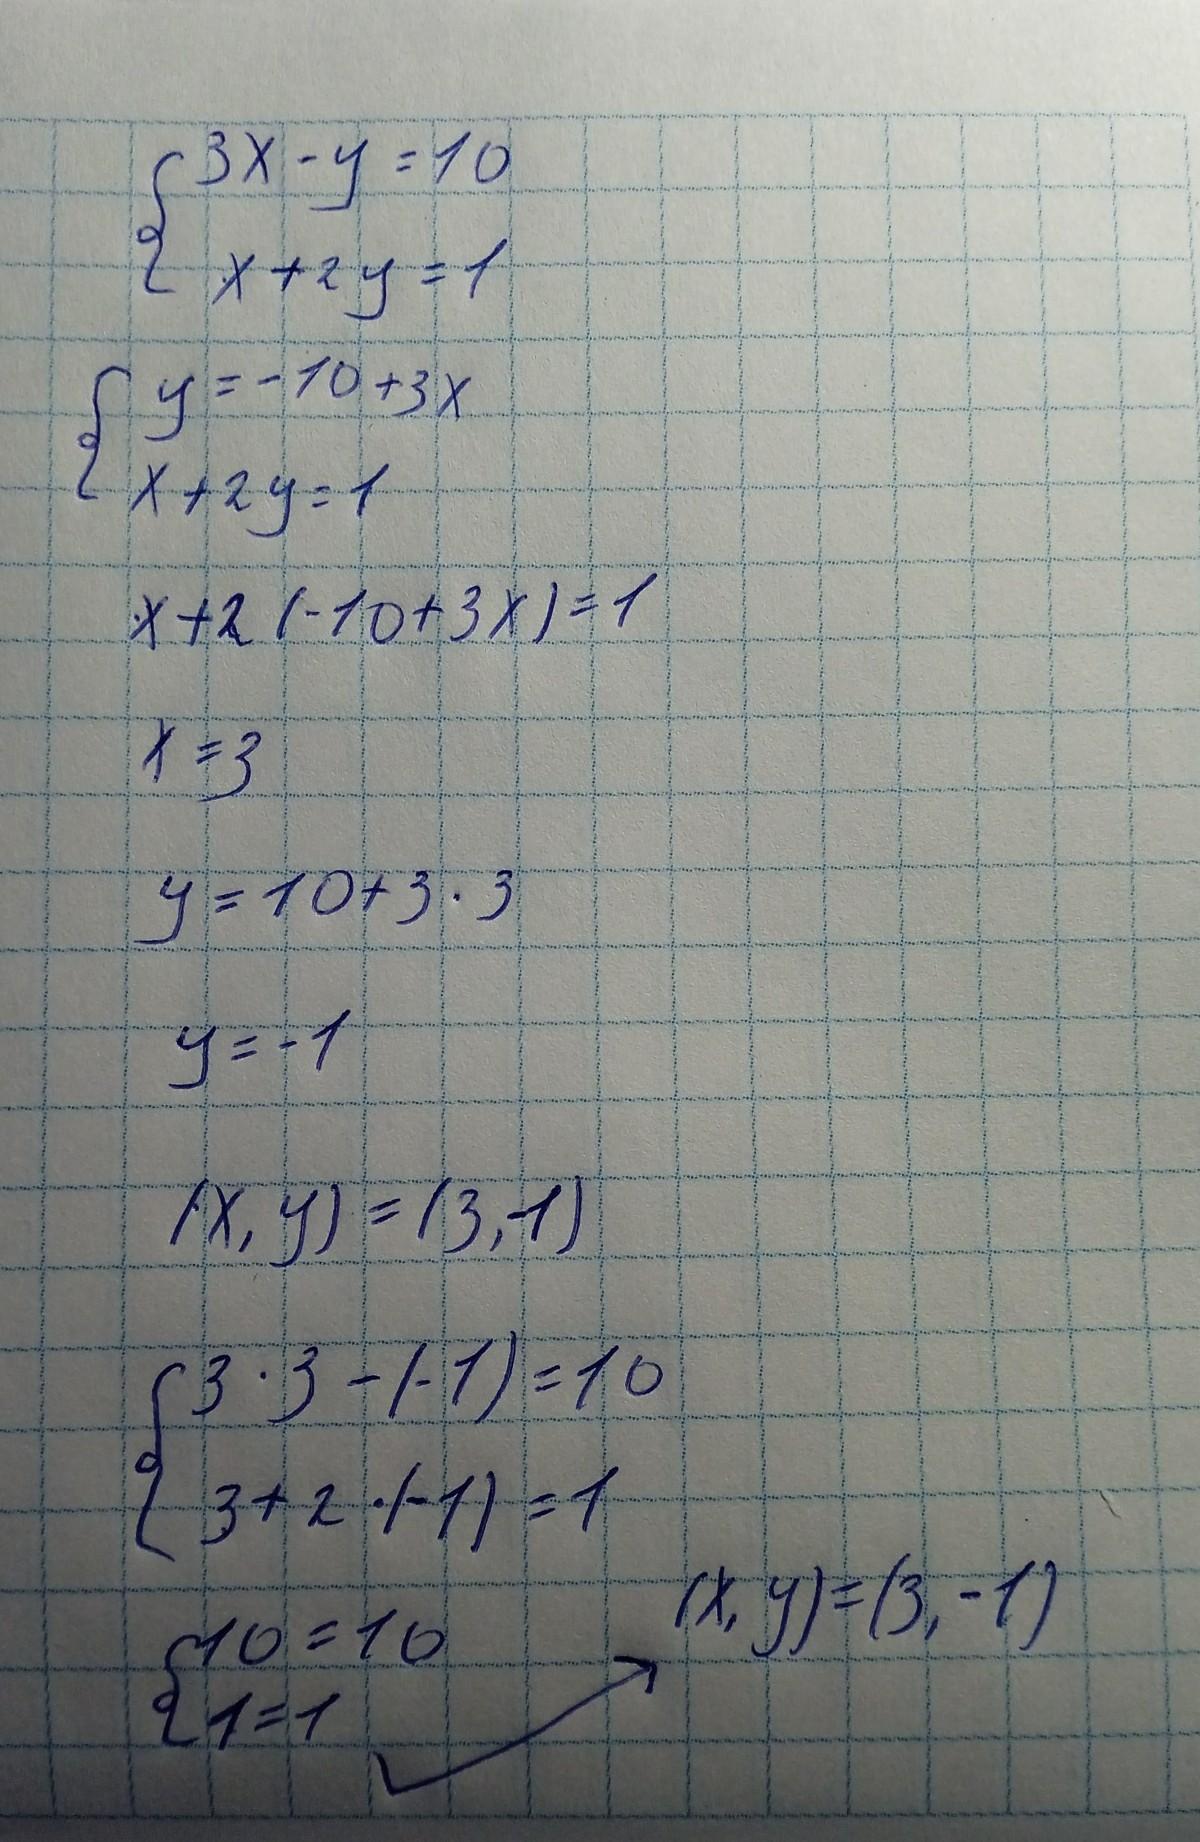 3x - y = 10
x + 2y = 1
y = -10 + 3x
x + 2y = 1
x + 2 (-10 + 3x) = 1
x = 3
y = 10 + 3 · 3
y = -1
(x, y) = (3, -1)
3 · 3 - (-1) = 10
3 + 2 · (-1) = 1
10 = 10
1 = 1
(x, y) = (3, -1)